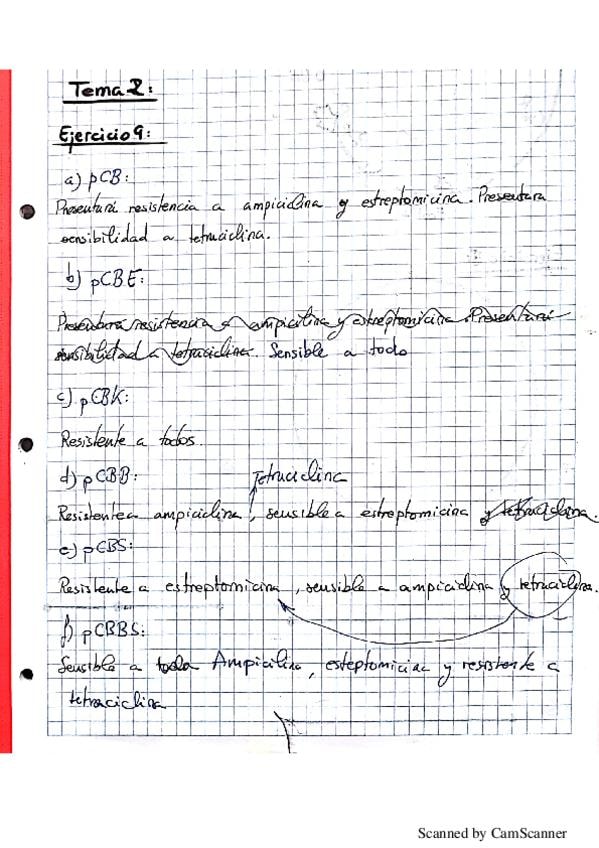 Tema 2:
Ejercicio 9:
a) pCB:
Presentará resistencia a ampicilina y estreptomicina. Presentara
sensibilidad a tetraciclina.
b) pCBE:
Presentara resistencia a ampicilina y estreptomicina. Presentará
sensibilidad a tetraciclina. Sensible a todo
c) pCBK:
Resistente a todos.
d) pCBB: Tetraciclina
Resistente a ampiciclina, sensible a estreptomicina y tetraciclina.
e) pCBS:
Resistente a estreptomicina, sensible a ampiciclina y tetraciclina.
f) pCBBS:
Sensible a todo Ampicilina, esteptomicina y resistente a
tetraciclina
Scanned by CamScanner